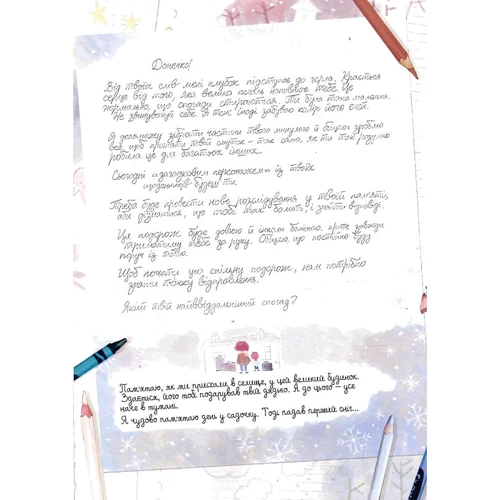 Донечко!
Від твоїх слів мені клубок підступає до горла. Крається
серце від того, яка велика печаль наповнює тебе. Це
нормально, що спогади стираються. Ти була така маленька.
Не звинувачуй себе. Я теж іноді забуваю колір його очей.
Я допоможу зібрати частинки твого минулого й врешті зроблю
все, щоб прогнати твій смуток – так само, як ти так радушно
робила це для багатьох інших.
Сьогодні «загадковим персонажем» із твоїх
щоденників будеш ти.
Треба буде провести нове розслідування у твоїй пам'яті,
аби дізнатися, що тобі так болить, і знайти відповіді.
Ця подорож буде довгою й інколи болісною, проте завжди
триматиму тебе за руку. Обіцяю, що постійно буду
поруч із тобою.
Щоб почати цю спільну подорож, нам потрібно
знати точку відправлення.
Який твій найвіддаленіший спогад?
Пам'ятаю, як ми приїхали в селище, у цей великий будинок.
Здається, його тобі подарував твій дядько. А до цього – усе
наче в тумані.
Я чудово пам'ятаю день у садочку. Тоді падав перший сніг...